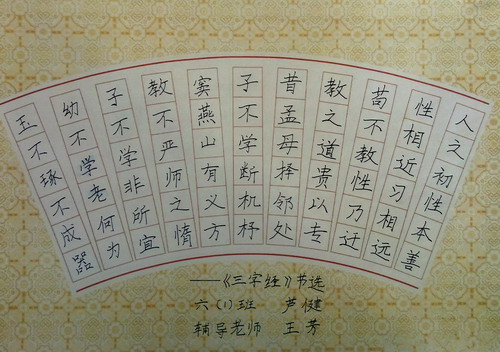 人之初性本善
性相近习相远
苟不教性乃迁
教之道贵以专
昔孟母择邻处
子不学断机杼
窦燕山有义方
教不严师之惰
子不学非所宜
幼不学老何为
玉不琢不成器
——《三字经》书选
六（1）班 芦健
辅导老师 王芳